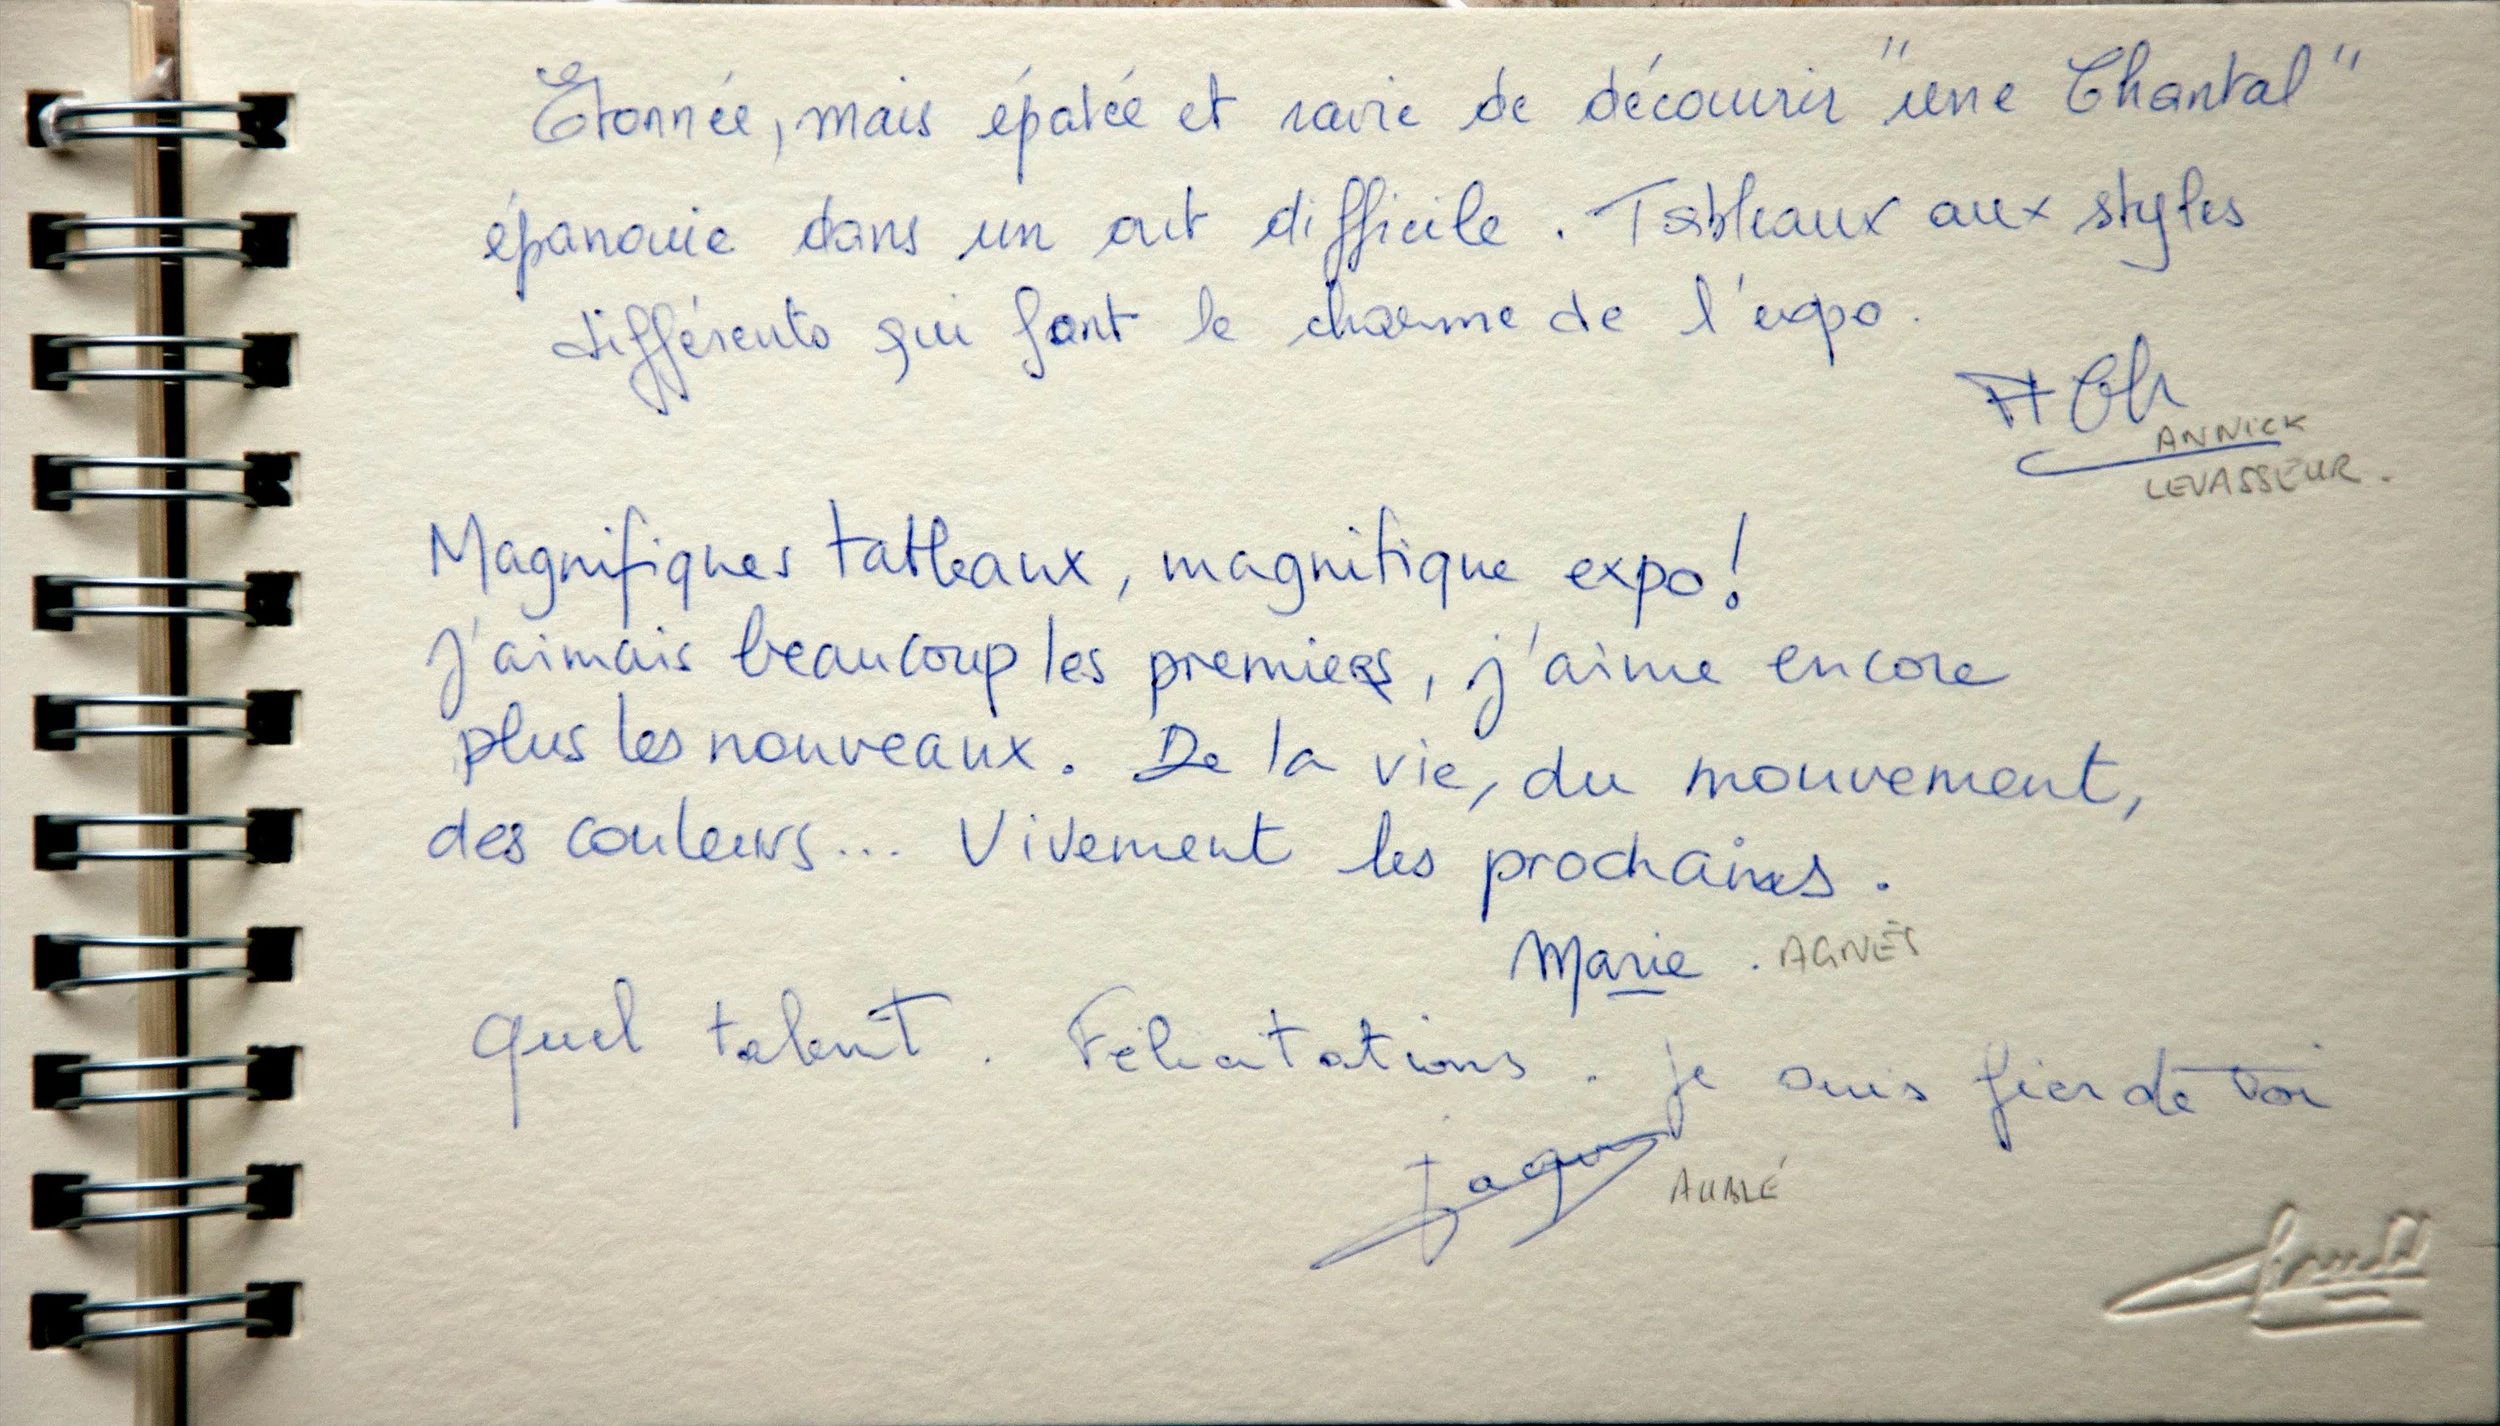 Etonnée, mais épatée et ravie de découvrir "une Chantal"
épanouie dans un art difficile. Tableaux aux styles
différents qui font le charme de l'expo.
ANNICK
LEVASSEUR.
Magnifiques tableaux, magnifique expo!
J'aimais beaucoup les premiers, j'aime encore
plus les nouveaux. De la vie, du mouvement,
des couleurs... Vivement les prochains.
Marie. AGNÈS
Quel talent. Félicitations. Je suis fier de toi
Jaques AUBLÉ